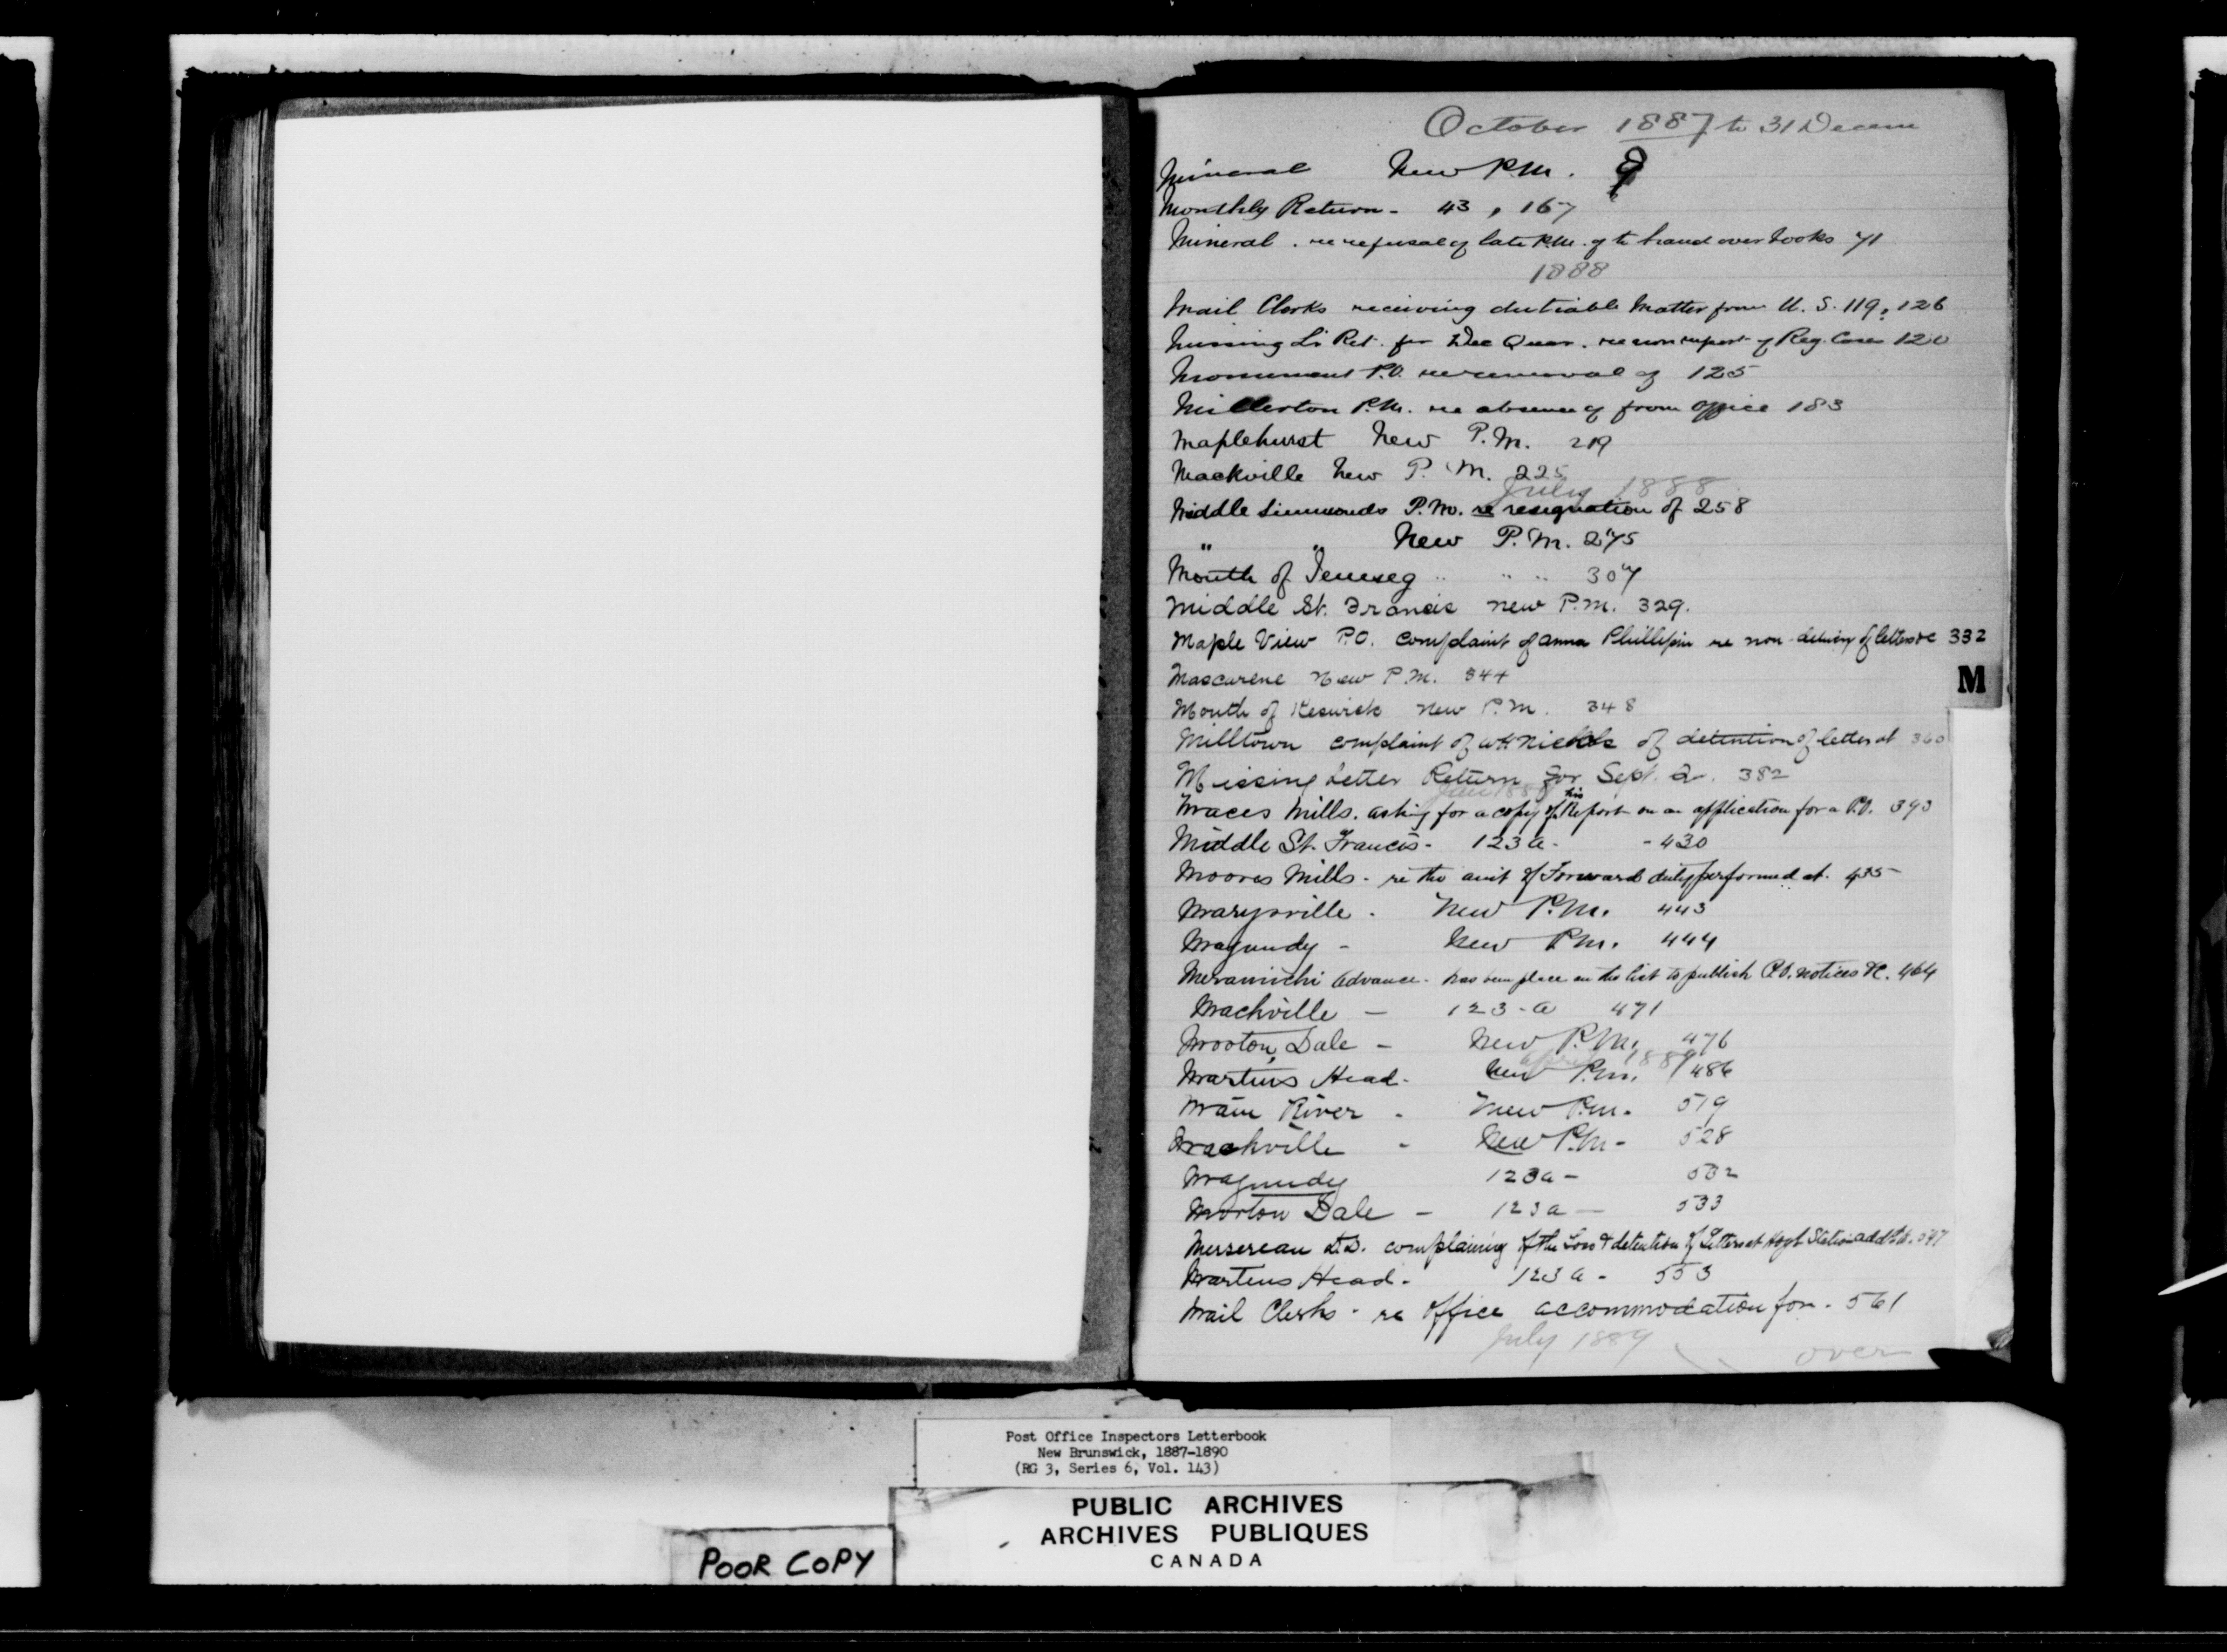 October 1887 to 31 Decem
Mineral New P.M. 9
Monthly Return - 43, 167
Mineral . re refusal of late P.M. of to hand over books 71
1888
Mail Clerks receiving dutiable Matter from U.S. 119, 126
Missing Lr Ret. for Dec Quar. re non report of Reg. Cases 120
Monument P.O. re removal of 125
Millerton P.M. re absence of from office 183
Maplehurst New P.M. 219
Mackville New P.M. 225
July 1888
Middle Simmonds P.M. re resignation of 258
" " New P.M. 275
Mouth of Jemseg " " " 307
Middle St. Francis new P.M. 329.
Maple View P.O. complaint of Anna Phillipin re non-delivery of letters &c 332
Mascarene New P.M. 344
M
Mouth of Keswick New P.M. 348
Milltown complaint of W.H. Nickels of detention of letter at 360
Missing Letter Return for Sept. Q. 382
Jan 1889
Maces Mills. asking for a copy of his Report on an application for a P.O. 393
Middle St. Francis - 123a - - 430
Moores Mills - re the amt of Forward duty performed at. 435
Marysville . New P.M. 443
Magundy - New P.M. 444
Meramichi Advance - has been place on the list to publish P.O. notices &c. 464
Mackville — 123-a 471
Mooton Dale - New P.M. 476
April 1889
Martins Head - New P.M. 486
Main River - New P.M. 519
Mackville - New P.M - 528
Magundy 123a - 532
Morton Dale - 123a — 533
Mersereau D.D. complaining of the Loss & detention of Letters at Hoyt Station add to. 547
Martins Head - 123a - 553
Mail Clerks - re office accommodation for - 561
July 1889
over
Post Office Inspectors Letterbook
New Brunswick, 1887-1890
(RG 3, Series 6, Vol. 143)
PUBLIC ARCHIVES
ARCHIVES PUBLIQUES
CANADA
POOR COPY